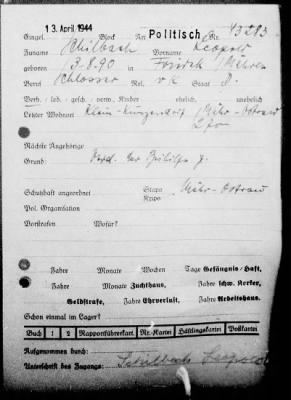 13. April 1944 Politisch Nr. 43283
Eingel. Block Nr.
Zuname Schilbach Vorname Leopold
geboren 3.8.90 in Friedek / Mähren
Beruf Schlosser Rel. rk Staat D.
Verh., led., gesch., verw., Kinder ehelich, unehelich
Letzter Wohnort Klein-Kunzendorf / Mähr-Ostrau
Nächste Angehörige
Grund: Verd. der Beihilfe z.
Schutzhaft angeordnet Stapo Mähr-Ostrau
Kripo
Pol. Organisation
Vorstrafen Wofür?
Jahre Monate Wochen Tage Gefängnis/Haft,
Jahre Monate Zuchthaus, Jahre schw. Kerker,
Geldstrafe, Jahre Ehrverlust, Jahre Arbeitshaus.
Schon einmal im Lager?
Buch 1 2 Rapportführerkart. Nr.-Kartei Häftlingskartei Postkartei
Aufgenommen durch:
Unterschrift des Zugangs: Schilbach Leopold